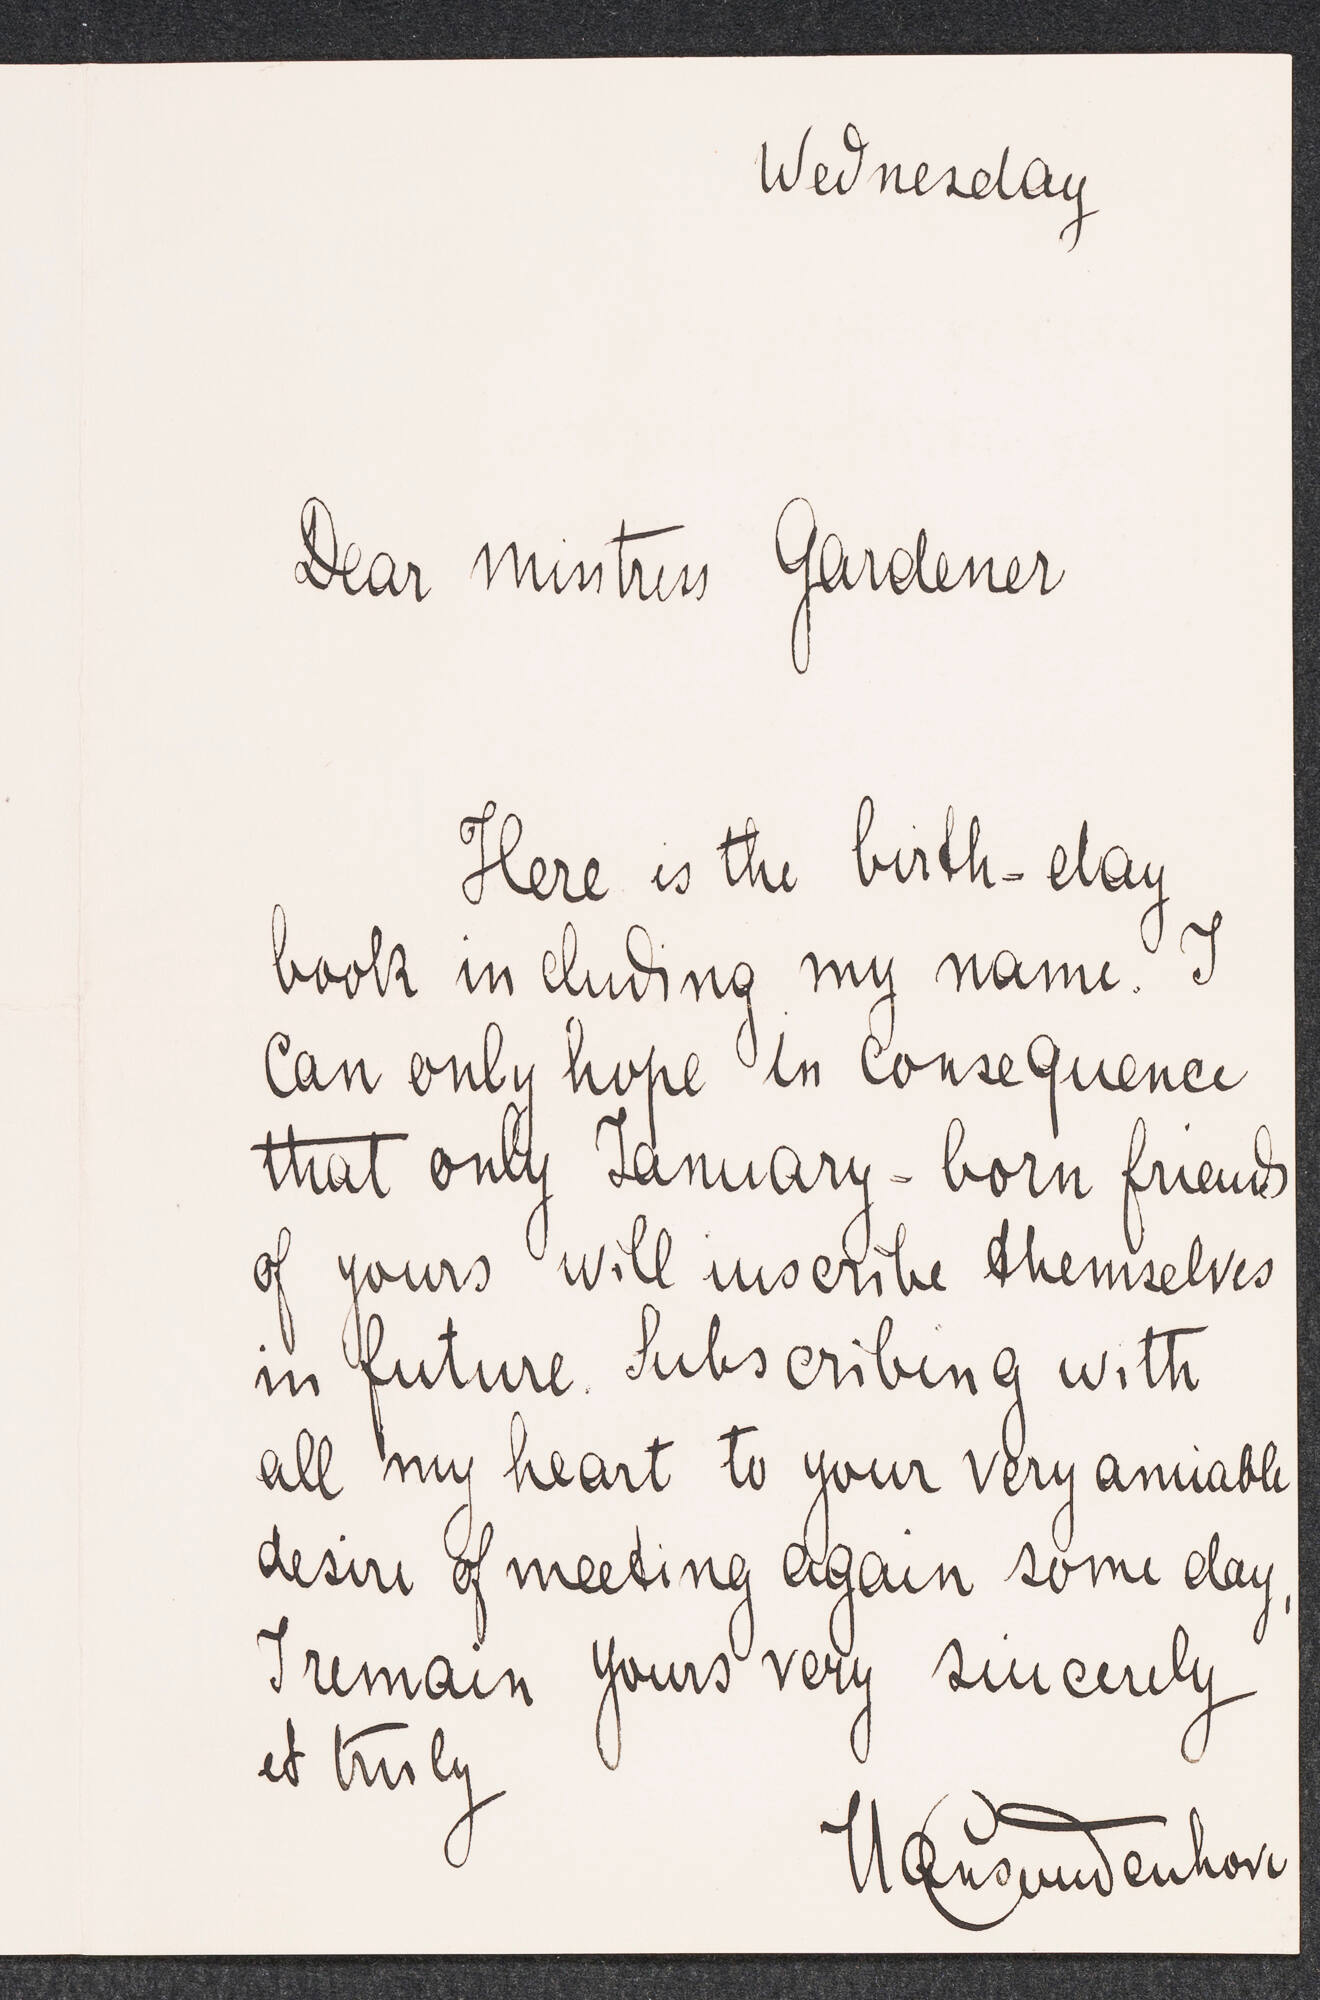 Wednesday
Dear Mistress Gardener
Here is the birth-day
book including my name. I
can only hope in consequence
that only January-born friends
of yours will inscribe themselves
in future. Subscribing with
all my heart to your very amiable
desire of meeting again some day,
I remain yours very sincerely
et truly